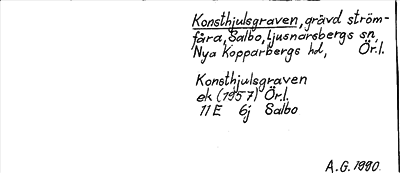 Konsthjulsgraven, grävd ström-
fåra, Salbo, Ljusnarsbergs sn,
Nya Kopparbergs hd, Ör.l.
Konsthjulsgraven
ek (1957) Ör.l.
11E 6j Salbo
A.G. 1990.